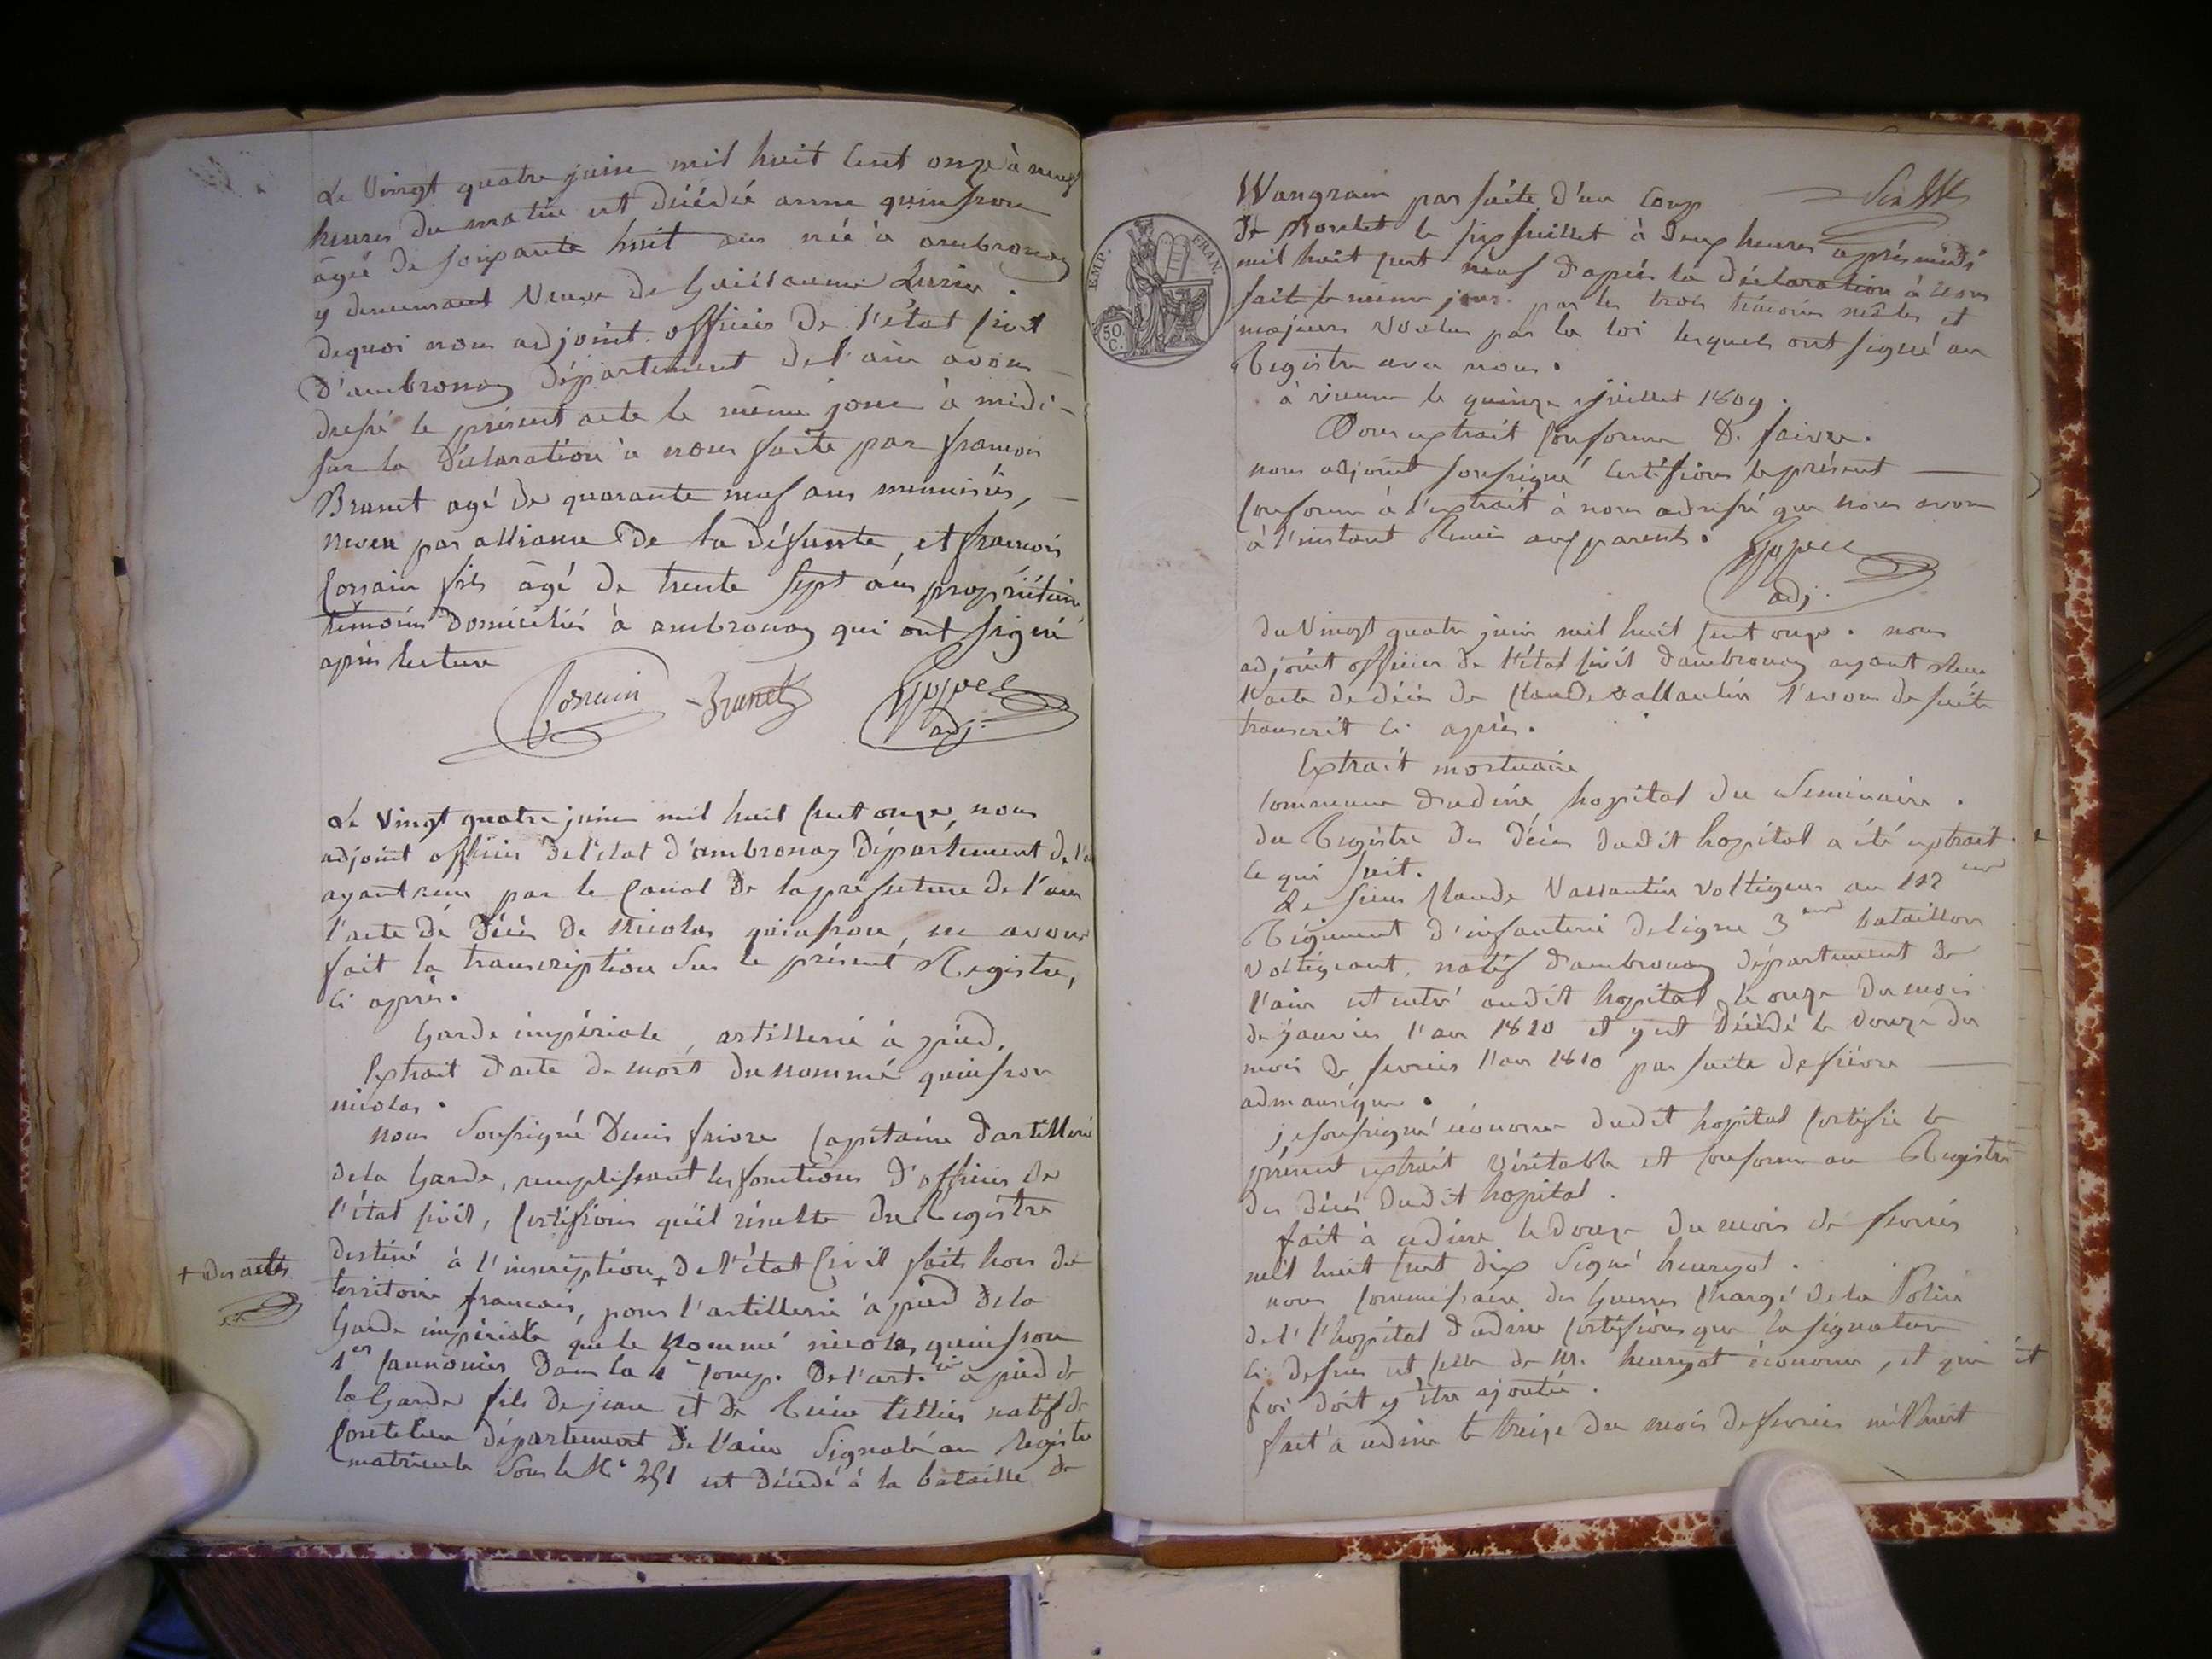 Le Vingt quatre juin mil huit Cent onze à neuf
heures du matin est décédée anne quinson
âgée de soixante huit ans née à ambronay
y demeurant Veuve de Guillaume
dequoi nous adjoint officier de l'état Civil
d'ambronay département de l'ain avons
dressé le présent acte le même jour à midi
sur la déclaration à nous faite par francois
Brunet agé de quarante neuf ans menuisier,
neveu par alliance de la défunte, et francois
Corsain fils âgé de trente Sept ans propriétaire
témoins domiciliés à ambronay qui ont signé
après lecture
Corsain Brunet
adj.
Le Vingt quatre juin mil huit Cent onze, nous
adjoint officier de l'état d'ambronay département de l'ain
ayant recu par le Canal de la préfecture de l'ain
l'acte de décès de Nicolas quinson, en avons
fait la transcription Sur le présent Registre,
Ci après.
Garde impériale, artillerie à pied.
Extrait d'acte de mort du nommé quinson
nicolas.
nous Soussigné Denis Capitaine d'artillerie
de la Garde, remplissant les fonctions d'officier de
l'état Civil, Certifions qu'il résulte du Registre
destiné à l'inscription + de l'état Civil faits hors du
+ des actes
territoire francais, pour l'artillerie à pied de la
Garde impériale que le Nommé nicolas quinson
1er Cannonier dans la 4e Comp. De l'art.ie à pied de
la Garde fils de jean et de Reine tillier natif de
département de l'ain Signalé au Registre
matricule Sous le N° 251 est décédé à la bataille de
EMP. FRAN.
50 C.
Wangram par suite d'un Coup
de Boulet le six juillet à deux heures après midi
mil huit Cent neuf d'après la déclaration à nous
faite le même jour par les trois témoins mâles et
majeurs voulus par la loi lesquels ont signé au
Registre avec nous.
à vienne le quinze juillet 1809.
Pour extrait Conforme D. faivre.
nous adjoint soussigné Certifions le présent
Conforme à l'extrait à nous adressé que nous avons
à l'instant Remis aux parents.
adj.
du Vingt quatre juin mil huit Cent onze. nous
adjoint officier de l'état Civil d'ambronay ayant Recu
l'acte de décès de Claude vallantin l'avons de suite
transcrit Ci après.
Extrait mortuaire
Commune d'udine hopital du Seminaire.
du Registre des décès dudit hopital a été extrait
Ce qui Suit.
Le Sieur Claude Vassantin voltigeur au 112eme
Régiment d'infanterie de ligne 3eme bataillon
voltigeant, natif d'ambronay département de
l'ain est entré audit hopital le onze du mois
de janvier l'an 1810 et y est décédé le douze du
mois de fevrier l'an 1810 par suite de fièvre
je soussigné économe dudit hopital Certifie le
présent extrait véritable et Conforme au Registre
des décès dudit hopital.
fait à udine le douze du mois de fevrier
mil huit Cent dix Signé
nous Commissaire des Guerres Chargé de la Police
de l'hopital d'udine Certifions que la signature
Ci dessus est Celle de Mr. économe, et que
foi doit y être ajoutée.
fait à udine le treize du mois de fevrier mil huit